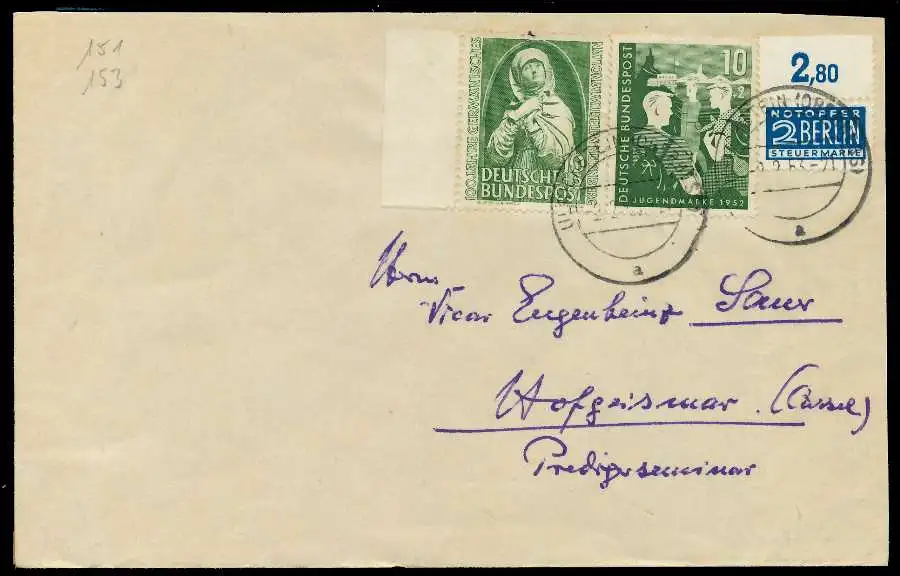 151
153
100 JAHRE GERMANISCHES
NATIONALMUSEUM
DEUTSCHE
BUNDESPOST
DEUTSCHE BUNDESPOST
10
+2
JUGENDMARKE 1952
2,80
NOTOPFER
2 BERLIN
STEUERMARKE
a
a
Herrn
Vicar Eugenheinz Sauer
Hofgeismar (Cassel)
Predigerseminar